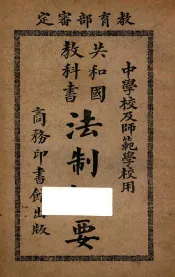 教育部審定
中學校及師範學校用
共和國
教科書
法制要
商務印書館出版